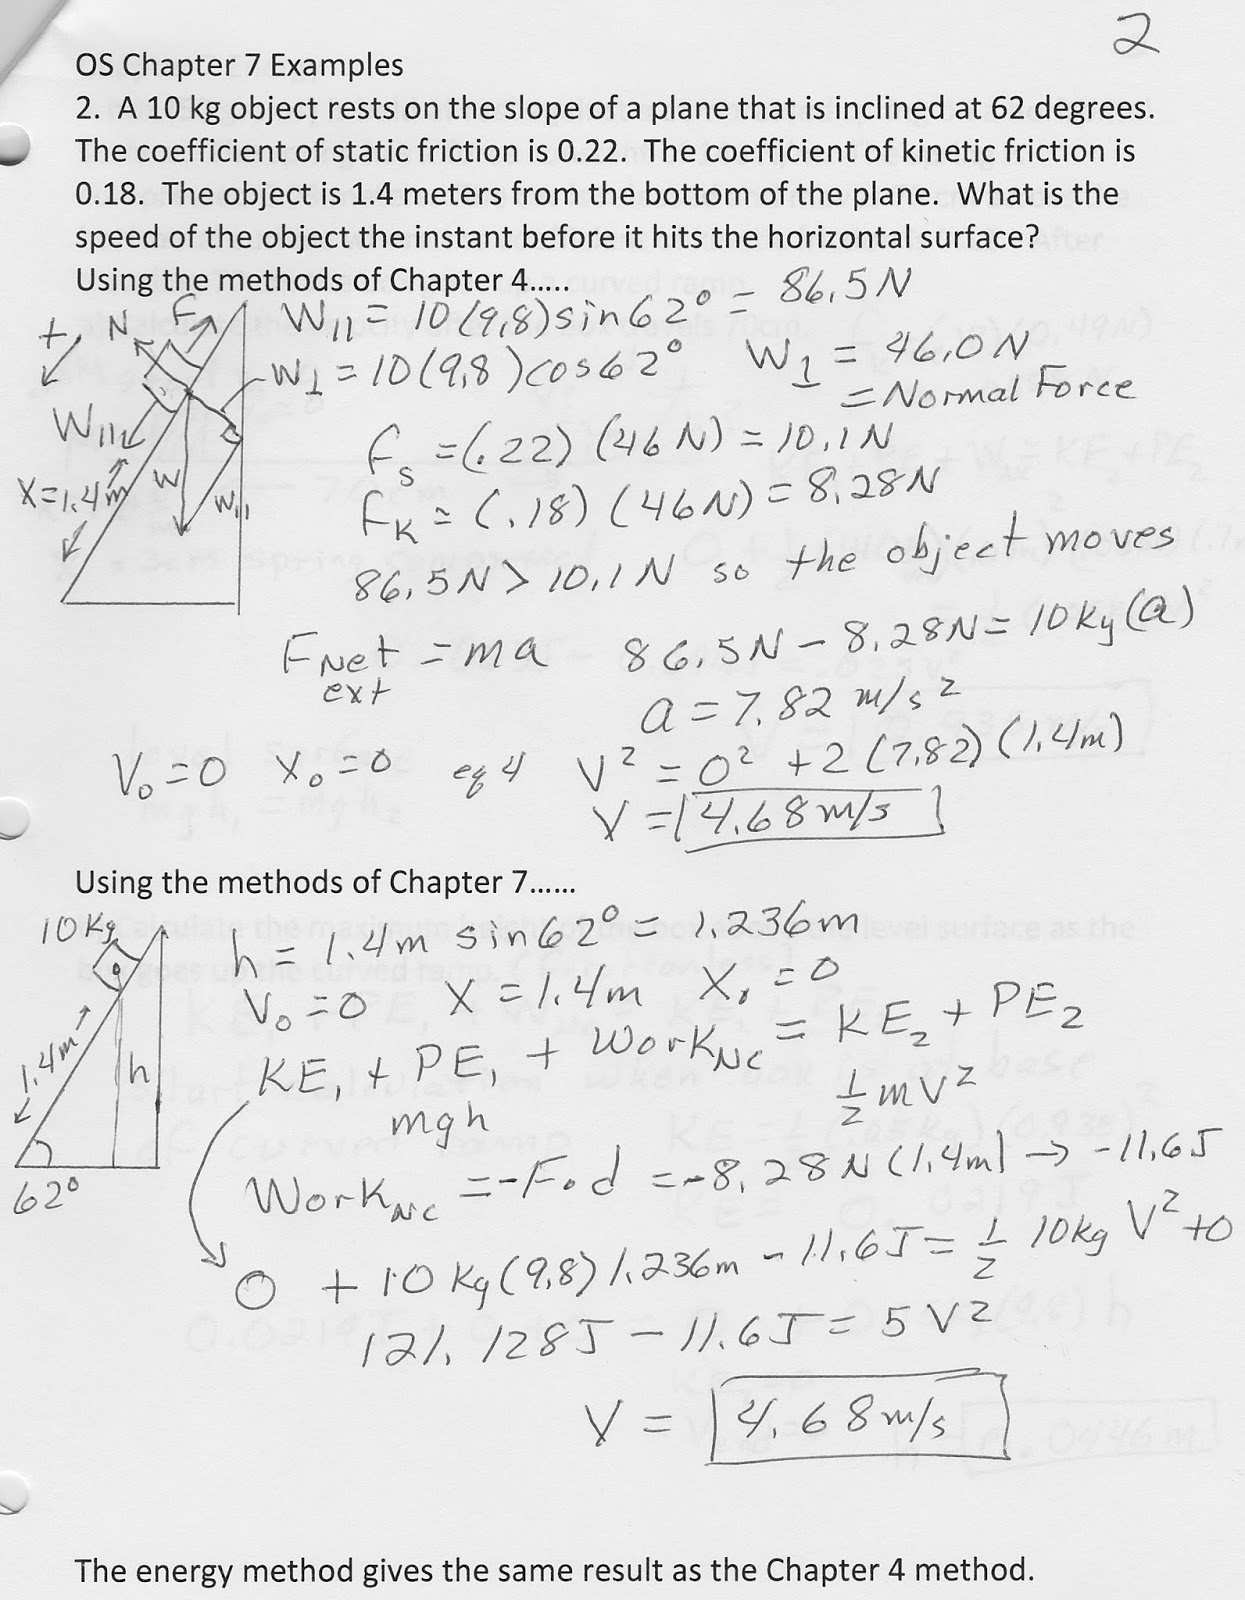 2
OS Chapter 7 Examples
2. A 10 kg object rests on the slope of a plane that is inclined at 62 degrees.
The coefficient of static friction is 0.22. The coefficient of kinetic friction is
0.18. The object is 1.4 meters from the bottom of the plane. What is the
speed of the object the instant before it hits the horizontal surface?
Using the methods of Chapter 4.....
+ N F W|| = 10(9,8)sin62° = 86.5N
W⊥ = 10(9,8)cos62° W⊥ = 46.0N
= Normal Force
W||
fs = (.22) (46N) = 10.1N
X=1.4m W W||
fK = (.18) (46N) = 8.28N
86.5N > 10.1N so the object moves
FNet = ma 86.5N - 8.28N = 10Kg(a)
ext
a = 7.82 m/s²
V₀=0 X₀=0 eq 4 V² = 0² + 2(7.82)(1.4m)
V = 4.68m/s
Using the methods of Chapter 7......
10Kg h = 1.4m sin62° = 1.236m
V₀ = 0 X = 1.4m X₀ = 0
1.4m h KE₁ + PE₁ + WorkNC = KE₂ + PE₂
mgh ½mV²
62° WorkNC = -F•d = -8.28N(1.4m) → -11.6J
0 + 10Kg(9.8)1.236m - 11.6J = ½ 10kg V² + 0
121.128J - 11.6J = 5V²
V = 4.68m/s
The energy method gives the same result as the Chapter 4 method.